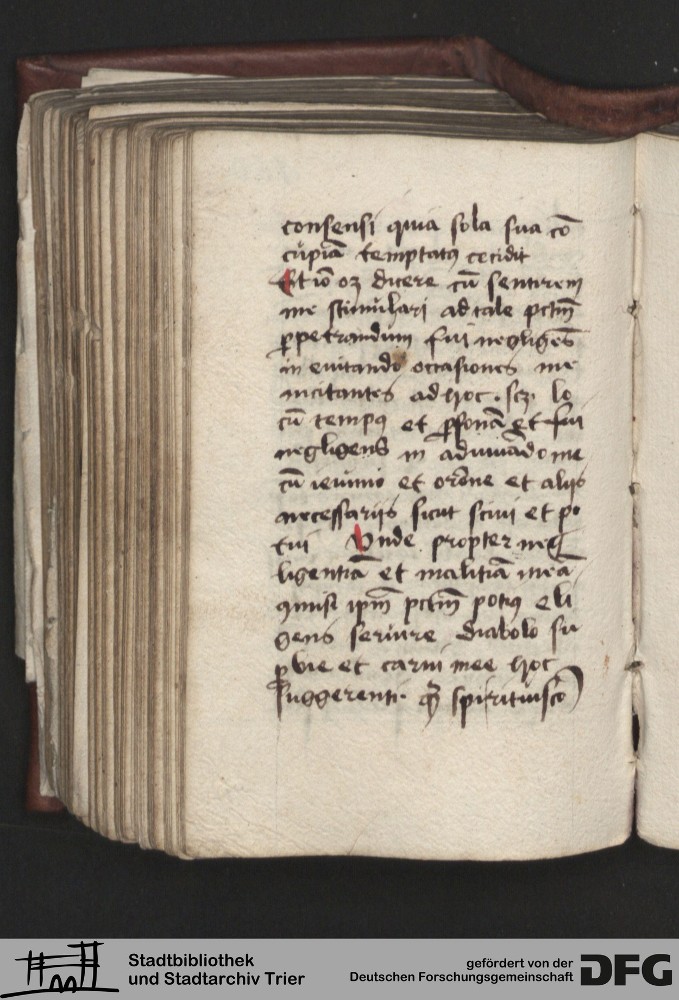 consensi quia sola sua cō
cupiā temptatꝯ cecidit
Et iō oꝫ dicere cū sentirem
me stimulari ad tale pctm̄
ꝑpetrandum fui negligēs
in euitando occasiones me
incitantes ad hoc. scꝫ lo
cū tempꝯ et ꝑsonā Et fui
negligens in adiuuādo me
cū ieiunio et orōne et aliis
necessariis sicut sciui et po
tui Vnde propter neg
ligentiā et malitiā meā
ipm̄ pctm̄ potiꝯ eli
gens seruire diabolo su
ꝑbie et carni mee hoc
suggerenti. qm̄ spirituisco
Stadtbibliothek
und Stadtarchiv Trier
gefördert von der
Deutschen Forschungsgemeinschaft
DFG